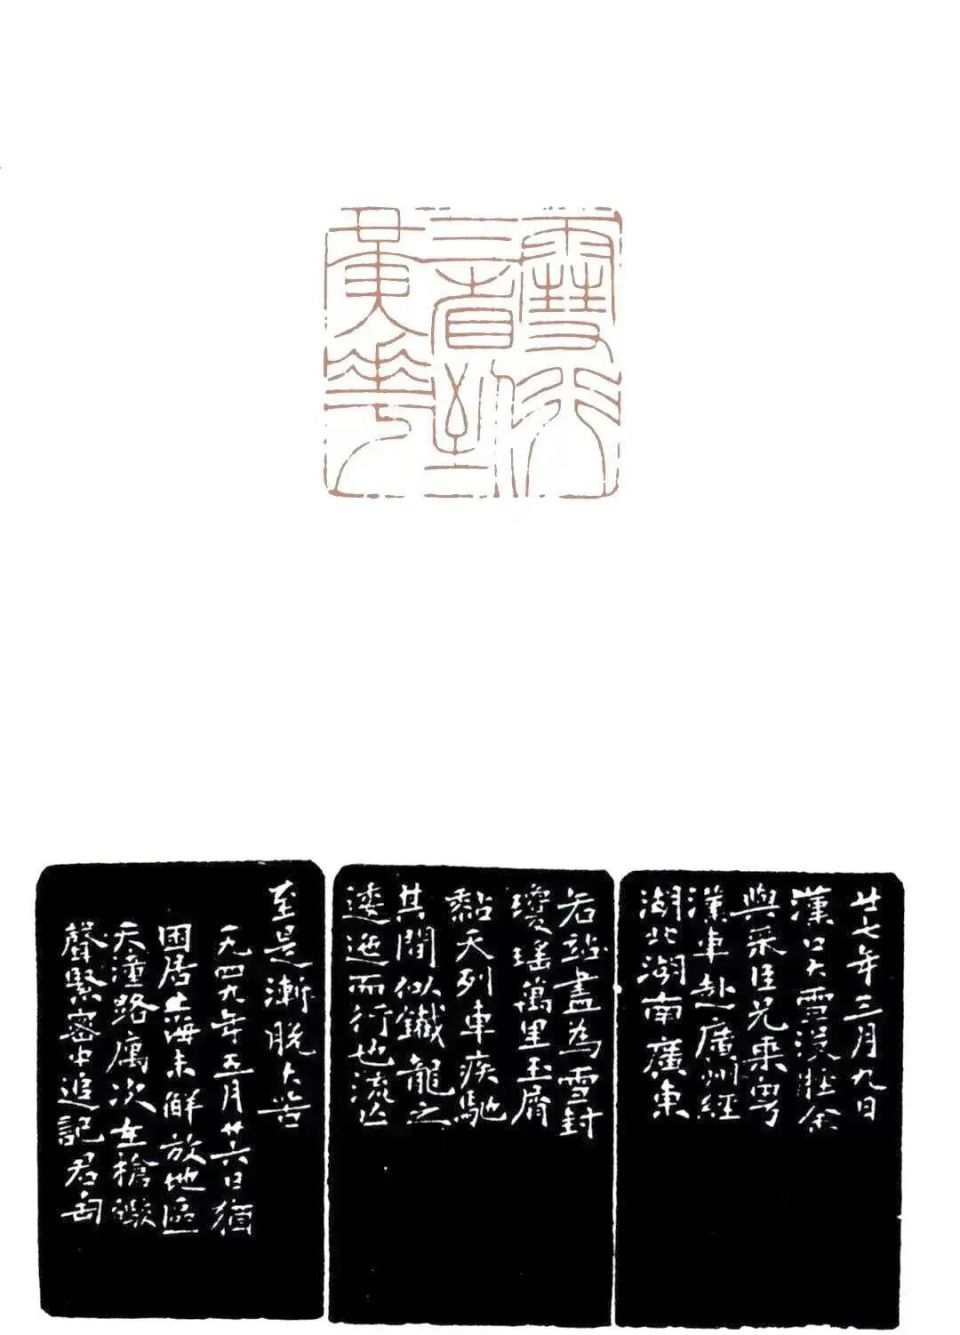 雪行
三省到
黃華
廿七年三月九日
漢口大雪沒脛余
與采臣兄乘粵
漢車赴廣州經
湖北湖南廣東
各站盡為雪封
瓊瑤萬里玉屑
黏天列車疾馳
其間似鐵龍之
逶迤而行也流亡
至是漸脫大苦
一九四九年五月廿六日猶
困居上海未解放地區
天潼路寓次在槍礮
聲緊密中追記君匋